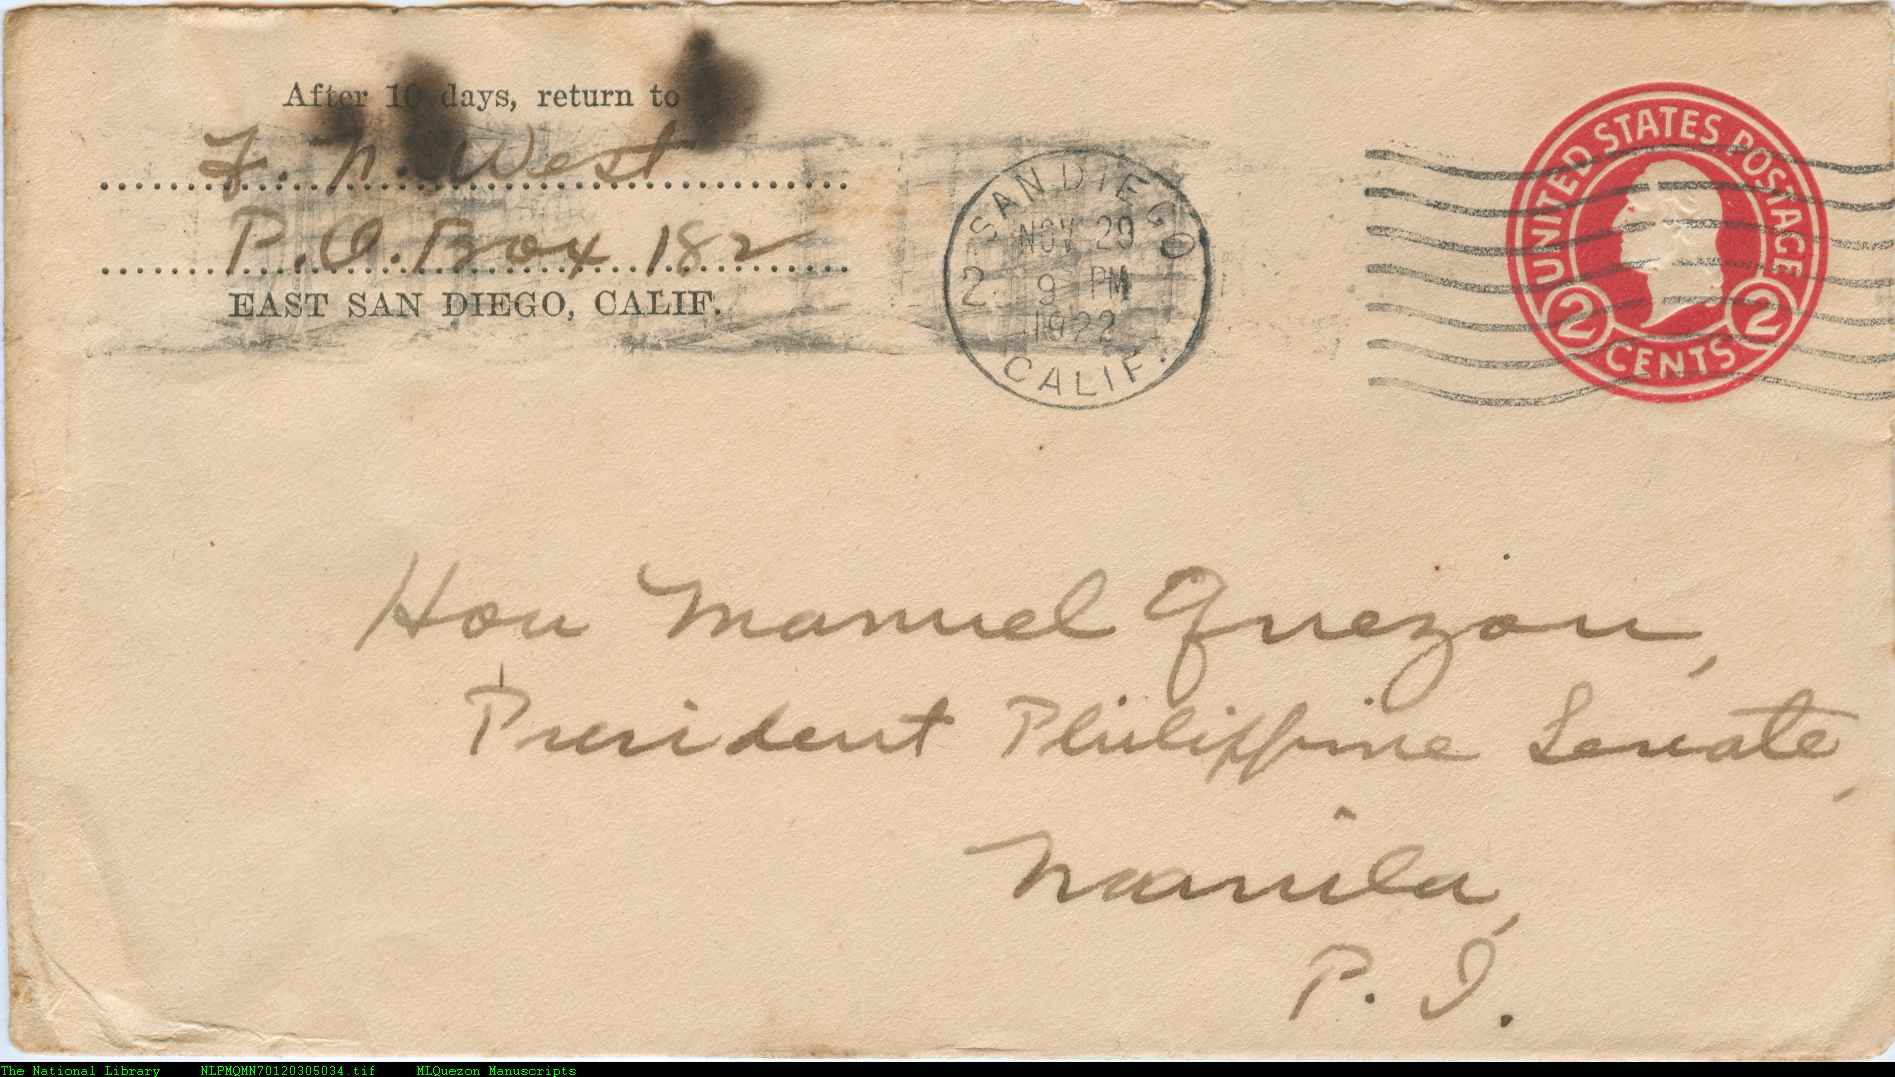 After 10 days, return to
F. N. West
P.O. Box 182
EAST SAN DIEGO, CALIF.
SAN DIEGO
NOV 29
2 9 PM
1922
CALIF.
UNITED STATES POSTAGE
2 CENTS 2
Hon Manuel Quezon,
President Philippine Senate,
Manila,
P. I.
The National Library NLPMQMN70120305034.tif MLQuezon Manuscripts